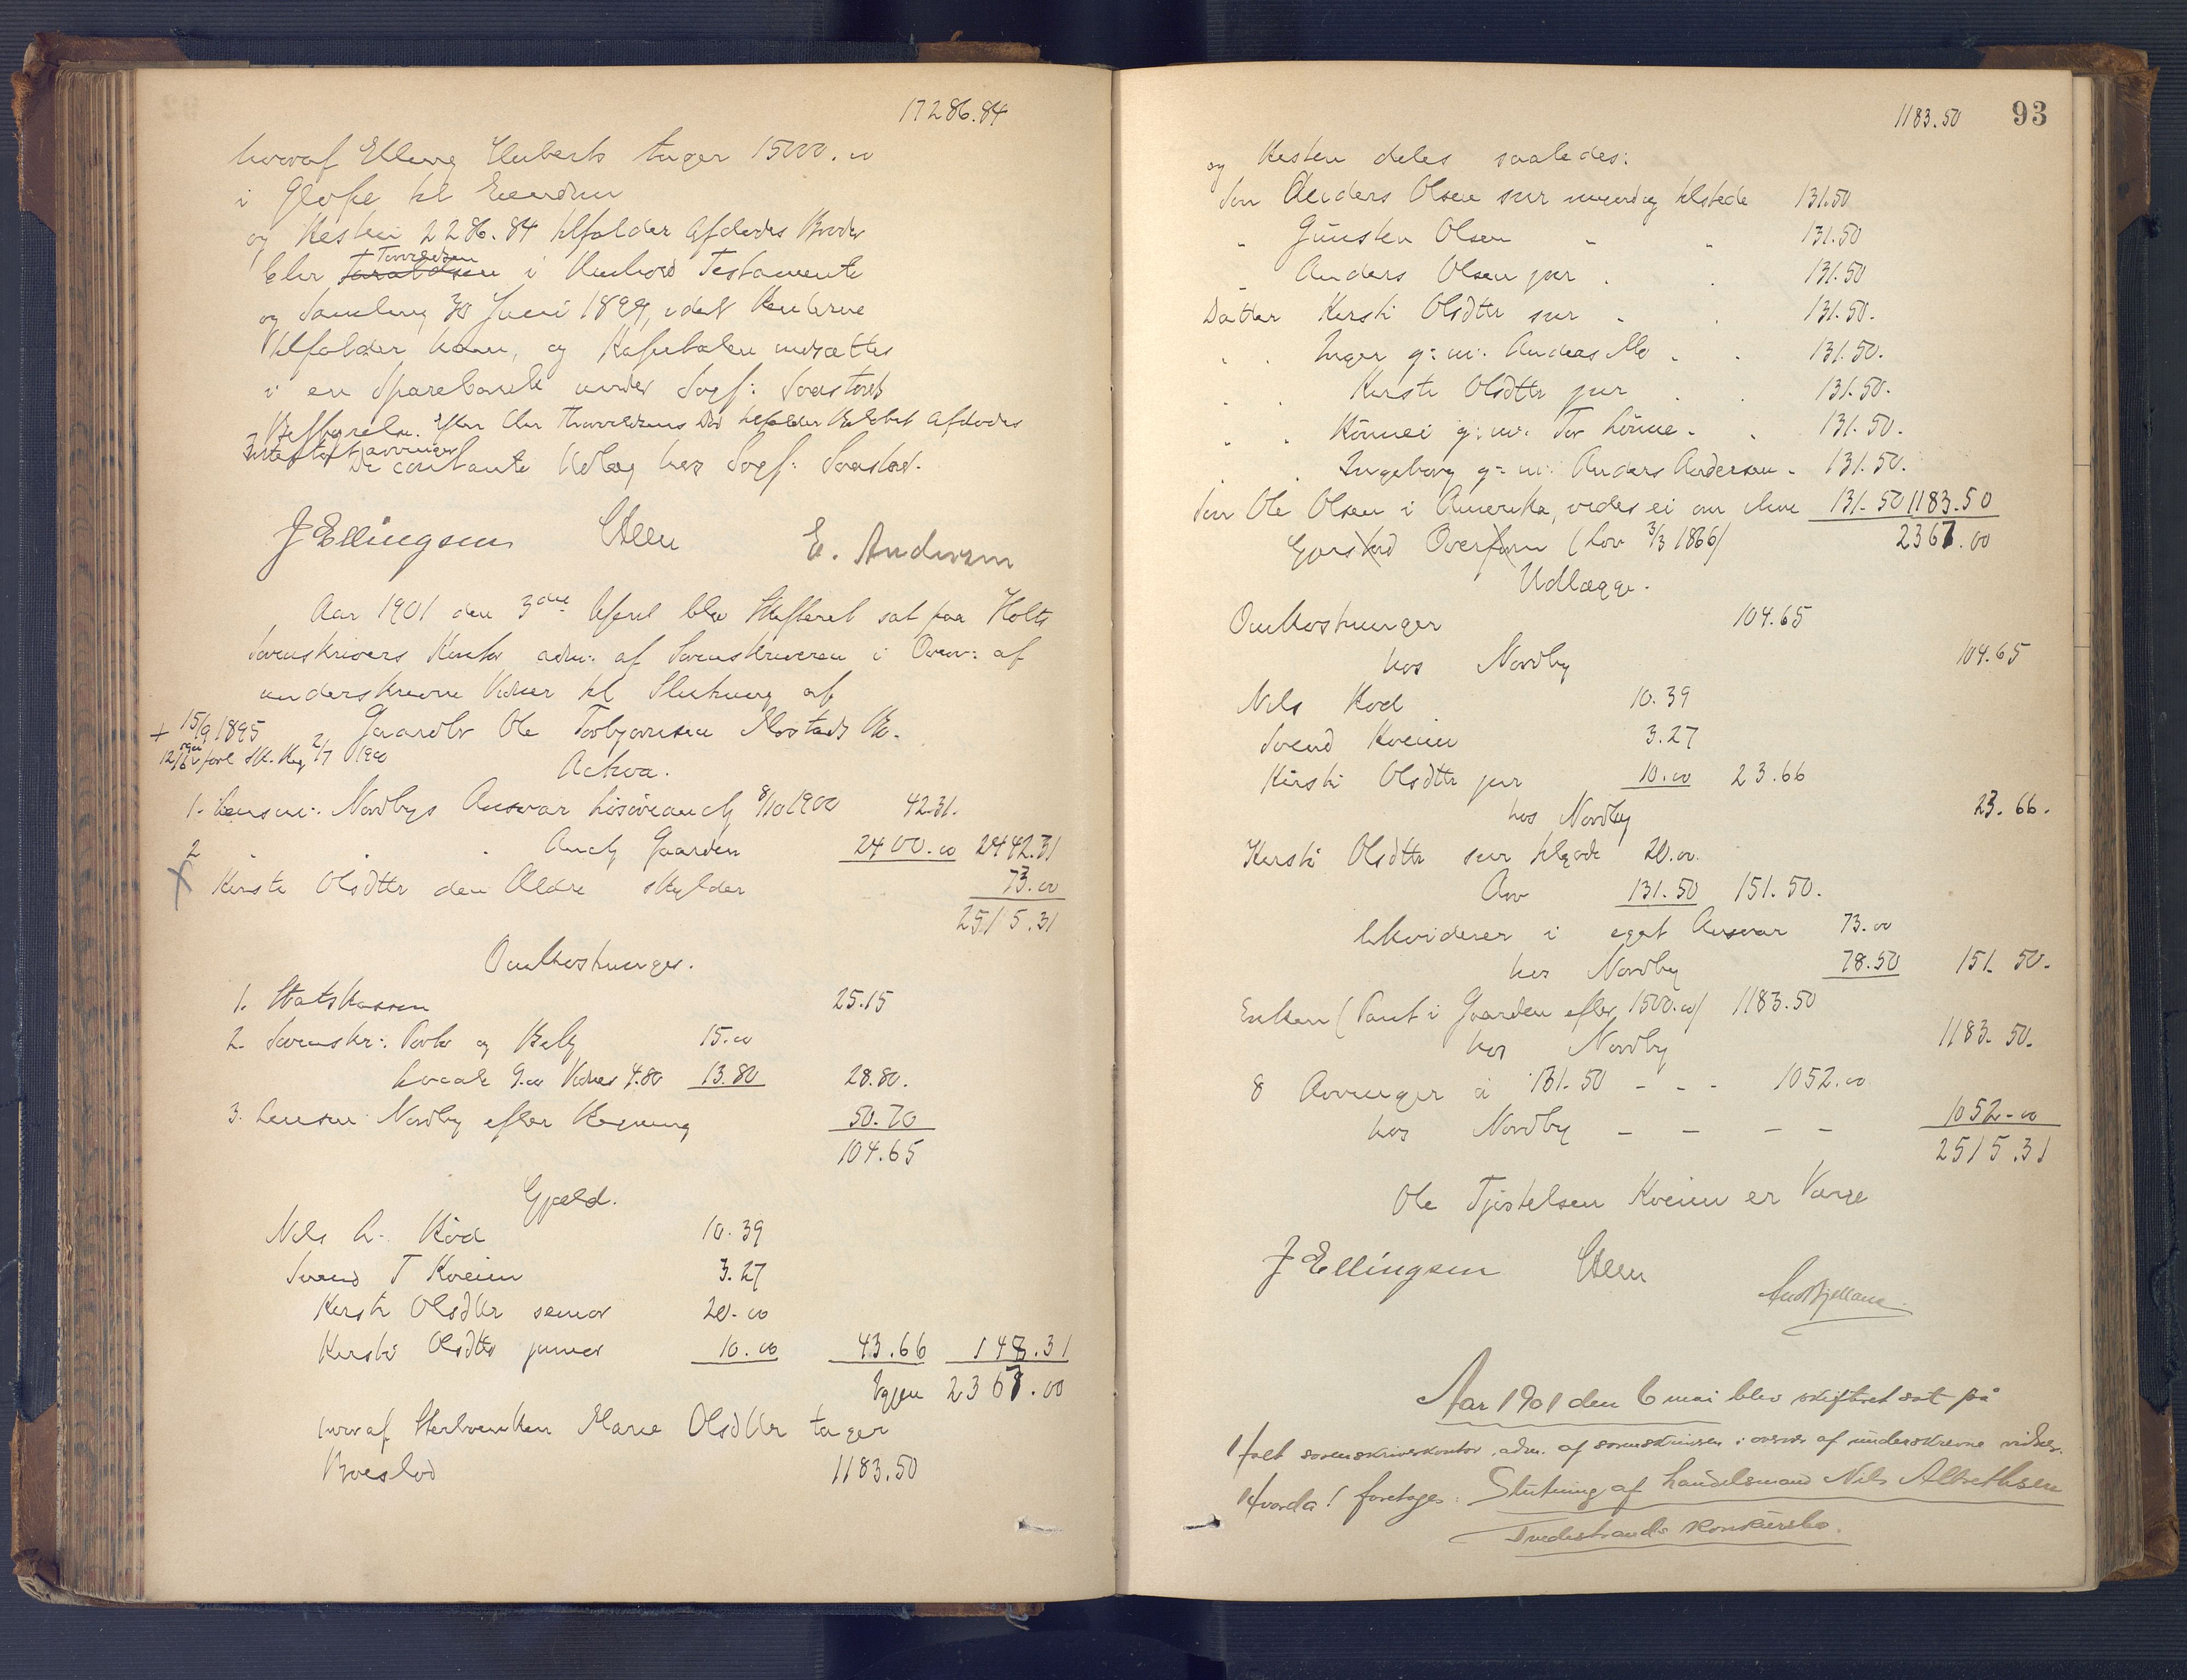 17286.84
hvoraf Elling Huberts tager 15000.00
i Gløse til Eiendom
og Resten 2286.84 tilfalder Afdødes Broder
Eler Torvildsen i Henhold Testamente
og Samling 30 Juni 1899, idet Renterne
tilfalder ham, og Kapitalen indsættes
i en Sparebank under Sogf: Sorstads
Bestyrelse. Efter Eler Thorvildsens Død tilfalder Beløbet Afdødes
Intestatarvinger
De contante Udlæg hos Sogf: Sorstad.
J Ellingsen Steen E. Andersen
Aar 1901 den 3die April blev Skifteret sat paa Holts
Sorenskrivers Kontor adm: af Sorenskriveren i Overv: af
underskrevne Vidner til Slutning af
+ 15/9 1895 Gaardbr Ole Torbjørnsen Mostads Bo.
12/6 forl Sk. Reg 2/7 1900
Activa.
1. Lensm: Nordbys Ansvar Løsøreauct 8/10 1900 42.31.
2 " " " Auct Gaarden 2400.00 2442.31
Kirsti Olsdttr den Ældre skylder 73.00
2515.31
Omkostninger.
1. Statskassen 25.15
2. Sorenskr: Porto og Bek 15.00
Lokale 9.00 Vidner 4.80 13.80 28.80.
3. Lensm Nordby efter Regning 50.70
104.65
Gjæld.
Nils A. Rød 10.39
Svend T Kveim 3.27
Kirsti Olsdttr senior 20.00
Kirsti Olsdttr junior 10.00 43.66 148.31
Igjen 2367.00
hvoraf Sterboenken Marie Olsdttr tager
Boeslod 1183.50
1183.50 93
og Resten deles saaledes:
Søn Anders Olsen snr myndig tilstede 131.50
" Gunsten Olsen " " 131.50
" Anders Olsen jnr " " 131.50
Datter Kirsti Olsdttr snr " " 131.50.
" " Inger g: m: Anders Mo " " 131.50.
" " Kirsti Olsdttr jnr " " 131.50.
" " Rønnei g: m: Tor Lønne " " 131.50.
" " Ingeborg g: m: Anders Andersen " 131.50.
Søn Ole Olsen i Amerika, vides ei om ilive 131.50 1183.50
Gjerstad Overform (Lov 3/3 1866) 2367.00
Udlægge.
Omkostninger 104.65
hos Nordby 104.65
Nils Rød 10.39
Svend Kveim 3.27
Kirsti Olsdttr jnr 10.00 23.66
hos Nordby 23.66.
Kirsti Olsdttr snr tilgode 20.00.
Arv 131.50 151.50.
likviderer i eget Ansvar 73.00
hos Nordby 78.50 151.50.
Enken (Pant i Gaarden efter 1500.00) 1183.50
hos Nordby 1183.50.
8 Arvinger á 131.50 - - - 1052.00
hos Nordby - - - - 1052.00
2515.31
Ole Tjøstelsen Kveim er Værge
J Ellingsen Steen
Aar 1901 den 6 mai blev skifteret sat på
Holt sorenskriverkontor, adm. af sorenskriveren i overvær af underskrevne vidner.
Hvorda! foretages: Slutning af handelsmand Nils Albrethsen
Tvedestrands konkursbo.